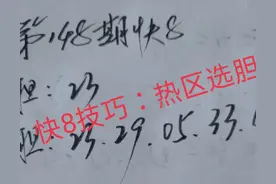 第148期快8
胆: 23
快8技巧：热区选胆
胆: 23.29.05.33.